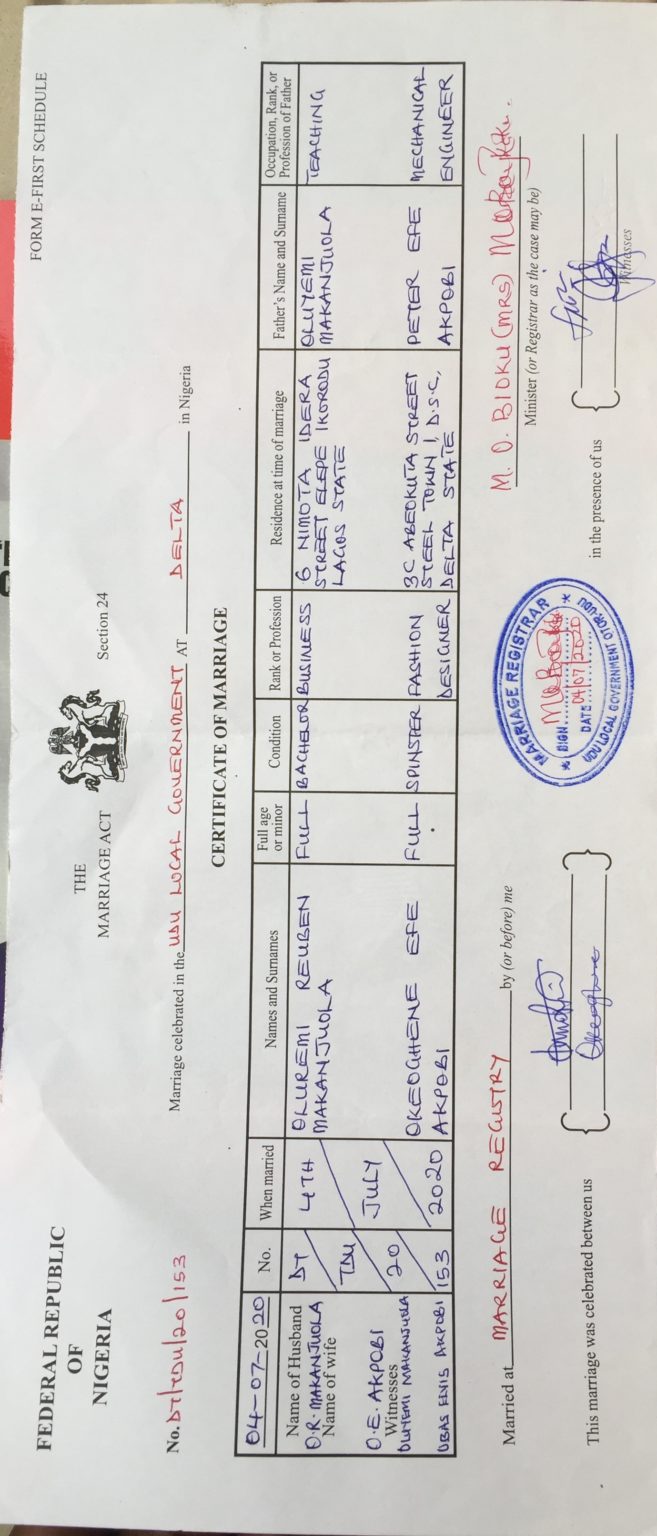 FORM E-FIRST SCHEDULE
FEDERAL REPUBLIC
OF
NIGERIA
THE
MARRIAGE ACT
Section 24
No. DT/TDU/20/153
Marriage celebrated in the UDU LOCAL GOVERNMENT AT DELTA in Nigeria
CERTIFICATE OF MARRIAGE
04-07-2020
No.
When married
Names and Surnames
Full age
or minor
Condition
Rank or Profession
Residence at time of marriage
Father's Name and Surname
Occupation, Rank, or
Profession of Father
Name of Husband
O.R. MAKANJUOLA
Name of wife
O.E. AKPOBI
Witnesses
OLUYEMI MAKANJUOLA
OBAS ELVIS AKPOBI
DT/
TDU/
20/
153
4TH/
JULY/
2020
OLUREMI REUBEN
MAKANJUOLA
FULL
BACHELOR
BUSINESS
6 NIMOTA IDERA
STREET ELEPE IKORODU
LAGOS STATE
OLUYEMI
MAKANJUOLA
TEACHING
OKEOGHENE EFE
AKPOBI
FULL
SPINSTER
FASHION
DESIGNER
3C ABEOKUTA STREET
STEEL TOWN 1, D.S.C,
DELTA STATE
PETER EFE
AKPOBI
MECHANICAL
ENGINEER
Married at MARRIAGE REGISTRY by (or before) me M. O. BIOKU (MRS)
Minister (or Registrar as the case may be)
MARRIAGE REGISTRAR
SIGN
DATE 04/07/2020
UDU LOCAL GOVERNMENT OTOR-UDU
This marriage was celebrated between us
in the presence of us
Witnesses